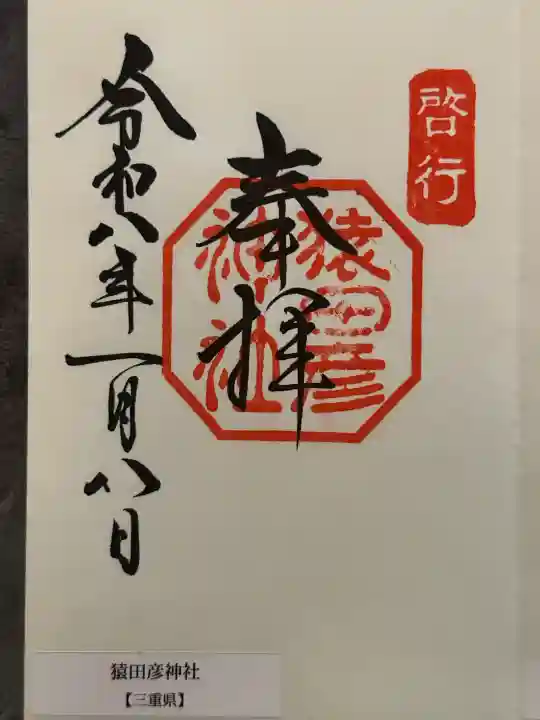 啓行
奉拝
猿田彦
神社
令和八年一月八日
猿田彦神社
【三重県】